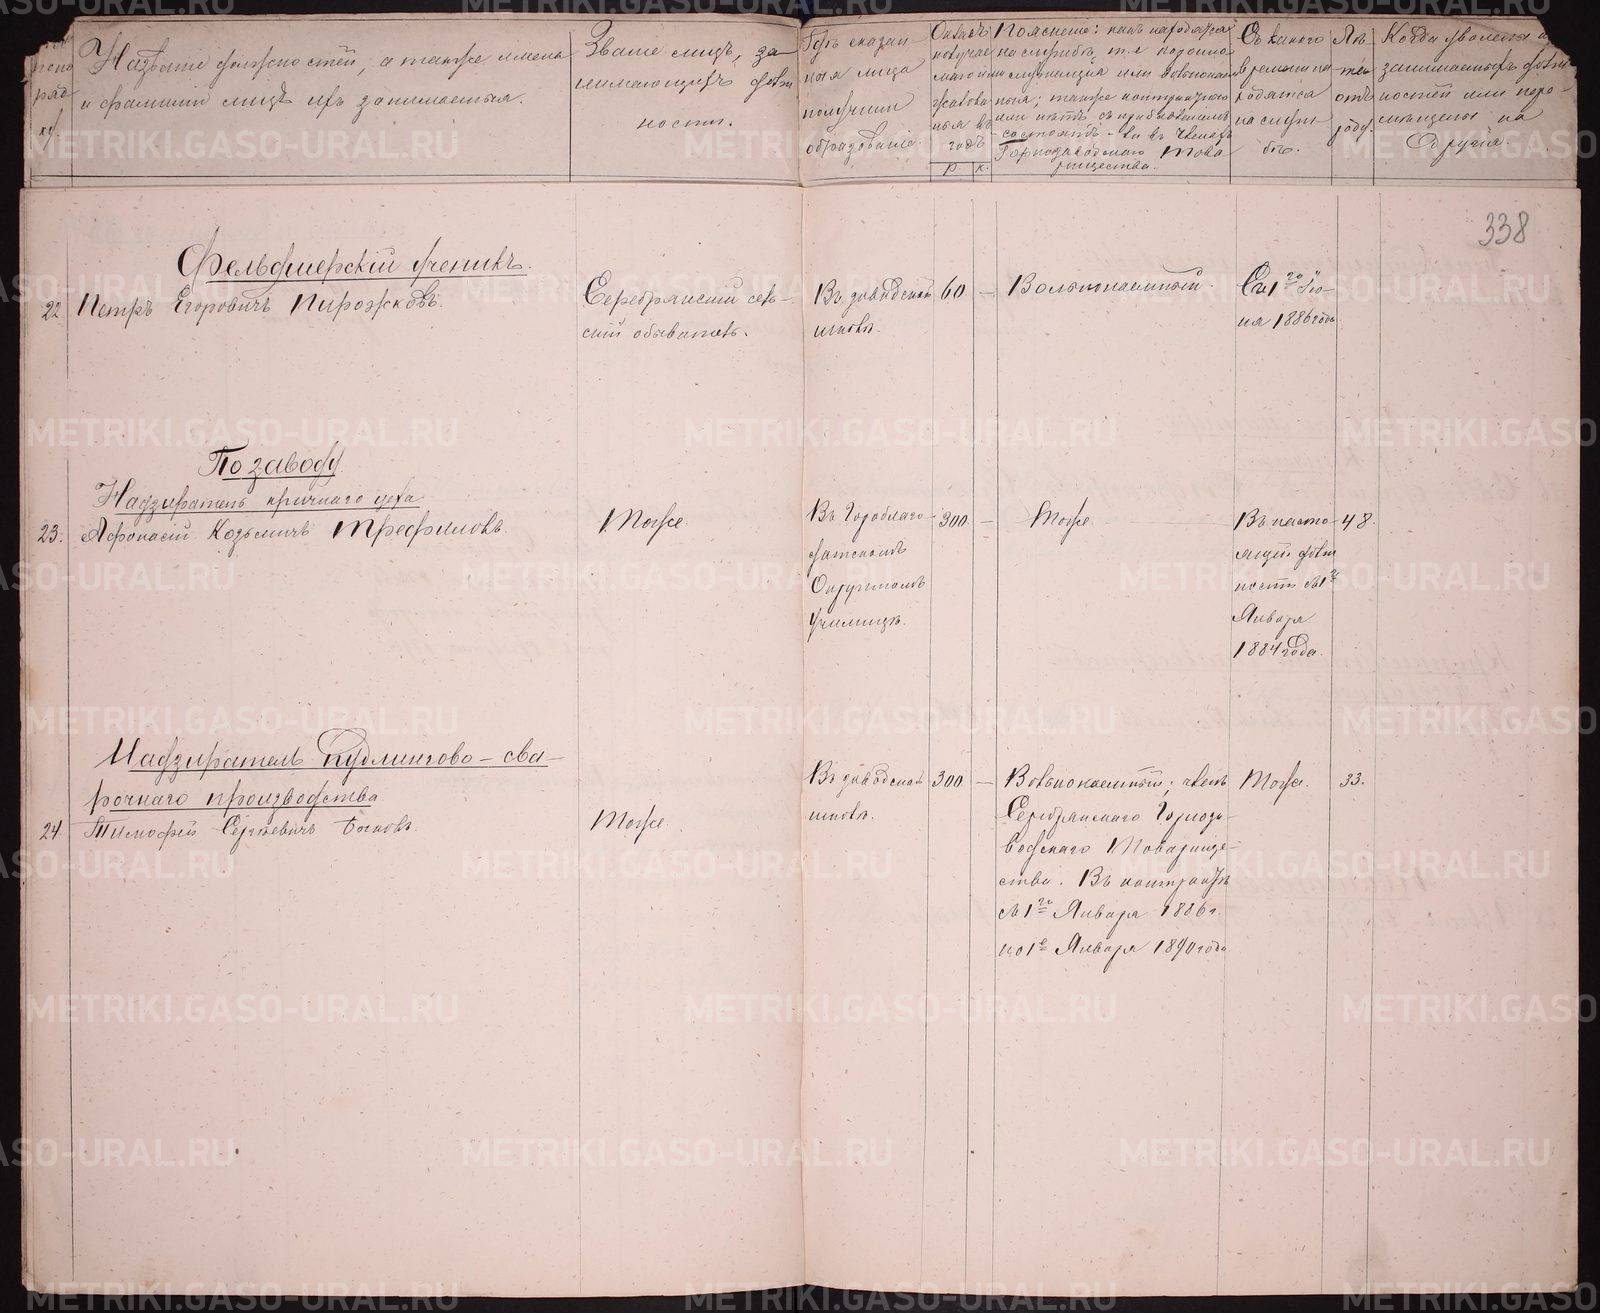 Названіе должностей, а также имена
и фамиліи лицъ ихъ занимаемыя.
Званіе лицъ, за
нимающихъ долж
ности.
Гдѣ сказан
ныя лица
получили
образованіе.
Окладъ
получае
маго
въ
годъ
р. к.
Поясненіе: какъ находятся
на службѣ, т.е.
служащія или вольнонаем
ныя; также контрактъ
или нѣтъ, съ
состоитъ-ли въ членахъ
Горнозаводскаго Това
рищества.
Съ какого
времени на
ходятся
на служ
бѣ.
Лѣ
та
отъ
роду.
Когда уволены
занимаемыхъ долж
ностей или пере
мѣщены на
другія.
338
Фельдшерскій ученикъ.
22 Петръ Егоровичъ Пирожковъ.
Серебрянскій сель-
скій обыватель.
Въ заводской
школѣ.
60 —
Вольнонаемный.
Съ 1го Ію
ня 1886 года
По заводу
Надзиратель кричнаго цеха
23. Афонасій Козьмичъ Трефиловъ.
Тоже.
Въ Гороблаго-
датскомъ
Окружномъ
училищѣ.
300 —
Тоже.
Въ насто
ящей долж
ности съ 1го
Января
1884 года.
48.
Надзиратель пудлингово-сва-
рочнаго производства
24. Тимофей Сергѣевичъ Быковъ.
Тоже.
Въ заводской
школѣ.
300 —
Вольнонаемный; членъ
Серебрянскаго Горноза-
водскаго Товарище-
ства. Въ контрактѣ
съ 1го Января 1886 г.
по 1е Января 1890 года
Тоже.
33.
METRIKI.GASO-URAL.RU